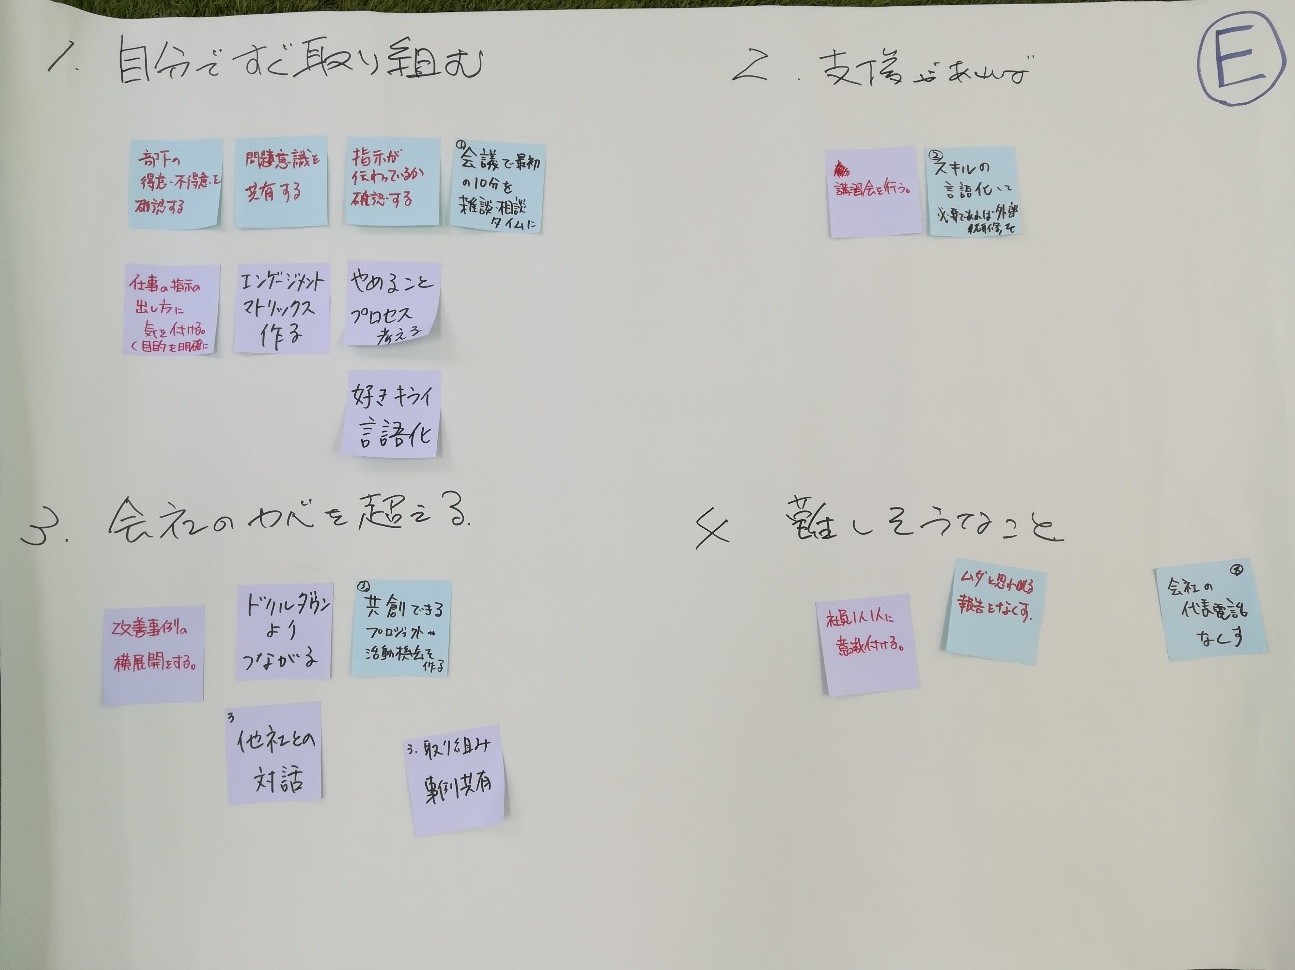 1. 自分ですぐ取り組む
部下の
得意・不得意を
確認する
問題意識を
共有する
指示が
伝わっているか
確認する
① 会議で最初
の10分を
雑談・相談
タイムに
仕事の指示の
出し方に
気を付ける。
目的を明確に
エンゲージメント
マトリックス
作る
やめること
プロセス
考える
好きキライ
言語化
2. 支援があれば
E
講習会を行う。
② スキルの
言語化して
必要であれば外部
研修を
3. 会社のカベを超える.
改善事例の
横展開をする。
ドリルダウン
より
つながる
③ 共創できる
プロジェクトや
活動機会を
作る
3
他社との
対話
3. 取り組み
事例共有
4 難しそうなこと
社員1人1人に
意識付ける。
ムダと思われる
報告をなくす.
④
会社の
代表電話
なくす